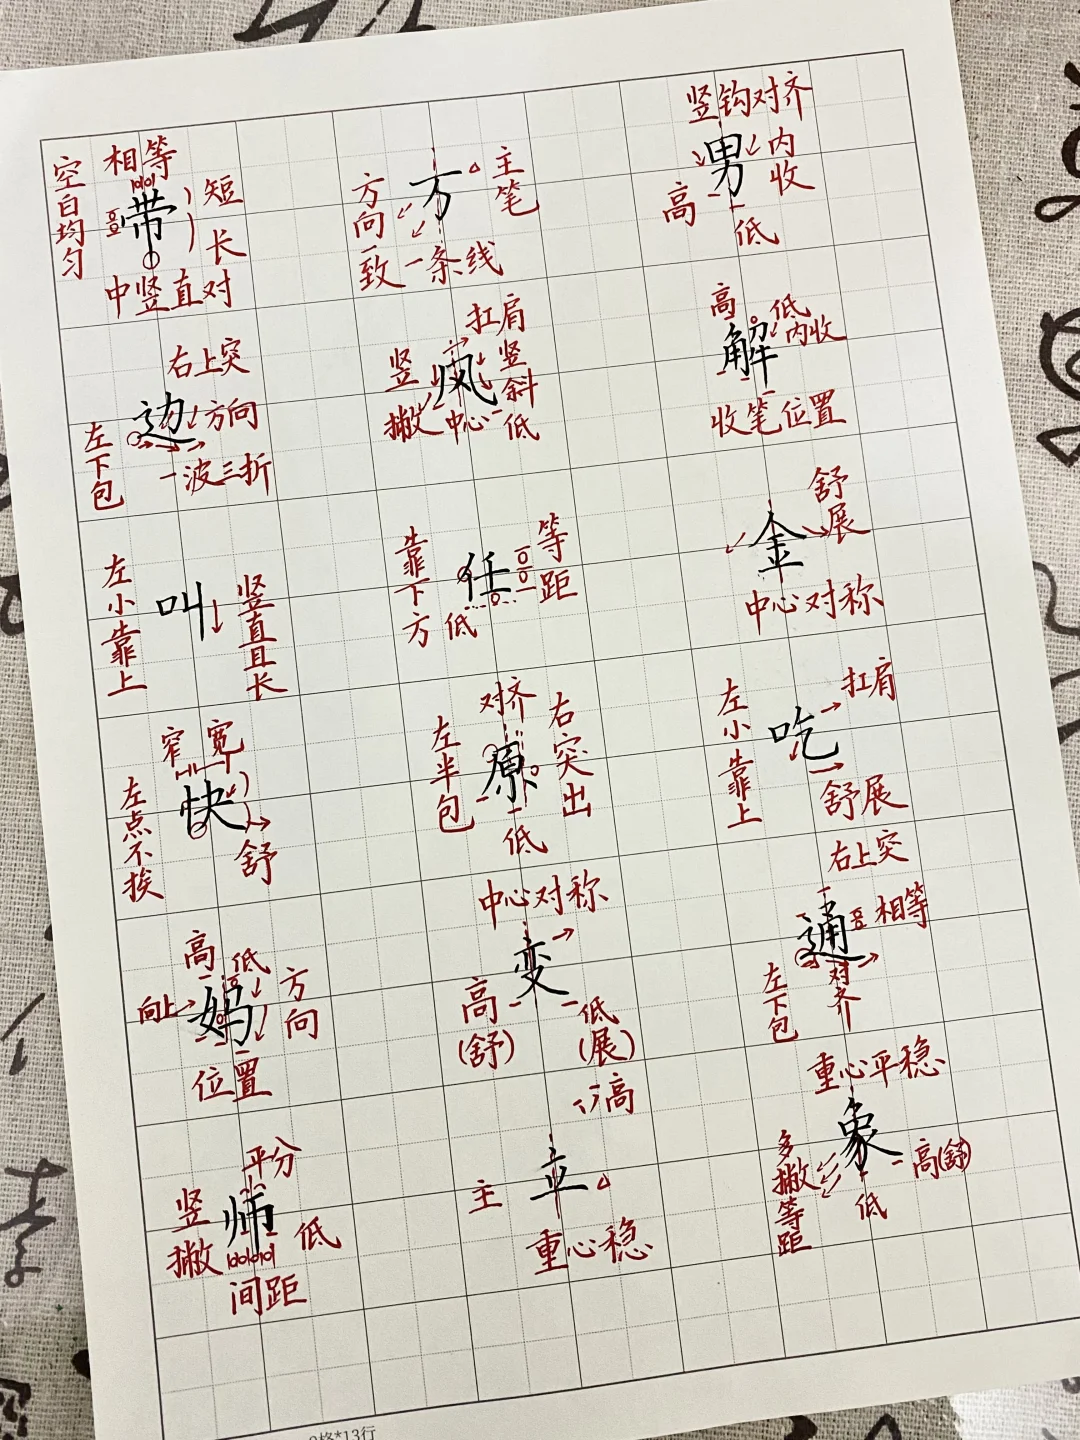 相等
空白均匀
带
短
长
中竖直对
方向一致
方
主笔
一条线
竖钩对齐
男
内收
高
低
右上突
边
方向
左下包
一波三折
扛肩
竖撇
风
竖斜
中心
低
高
低
内收
解
收笔位置
左小靠上
叫
竖直且长
靠下方
任
等距
低
舒展
金
中心对称
窄
宽
左点不挨
快
舒
对齐
左半包
原
右突出
低
左小靠上
吃
扛肩
舒展
高
低
向上
妈
方向
位置
中心对称
变
高(舒)
低(展)
右上突
通
相等
左下包
对齐
平分
竖撇
师
低
间距
高
主
立
重心稳
重心平稳
象
多撇等距
低
高(舒)
9格*13行